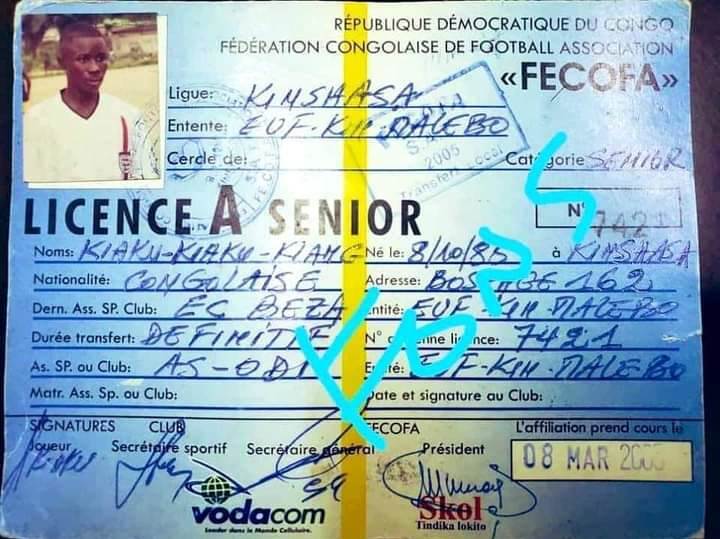 RÉPUBLIQUE DÉMOCRATIQUE DU CONGO
FÉDÉRATION CONGOLAISE DE FOOTBALL ASSOCIATION
«FECOFA»
Ligue: KINSHASA
Entente: EUF-KIN MALEBO
Cercle de:
2005
Transfert Local
Catégorie SENIOR
LICENCE A SENIOR
N° 7421
Noms: KIAKU-KIAKU-KIANG Né le: 8/10/85 à KINSHASA
Nationalité: CONGOLAISE Adresse: 162
Dern. Ass. SP. Club: FC BEZA Entité: EUF-KIN-MALEBO
Durée transfert: DEFINITIF N° licence: 7421
As. SP. ou Club: AS- EUF-KIN-MALEBO
Matr. Ass. Sp. ou Club: Date et signature au Club:
SIGNATURES CLUB FECOFA L'affiliation prend cours le
Joueur Secrétaire sportif Secrétaire général Président
08 MAR
vodacom
Leader dans le Monde Cellulaire.
Skol
Tindika lokito